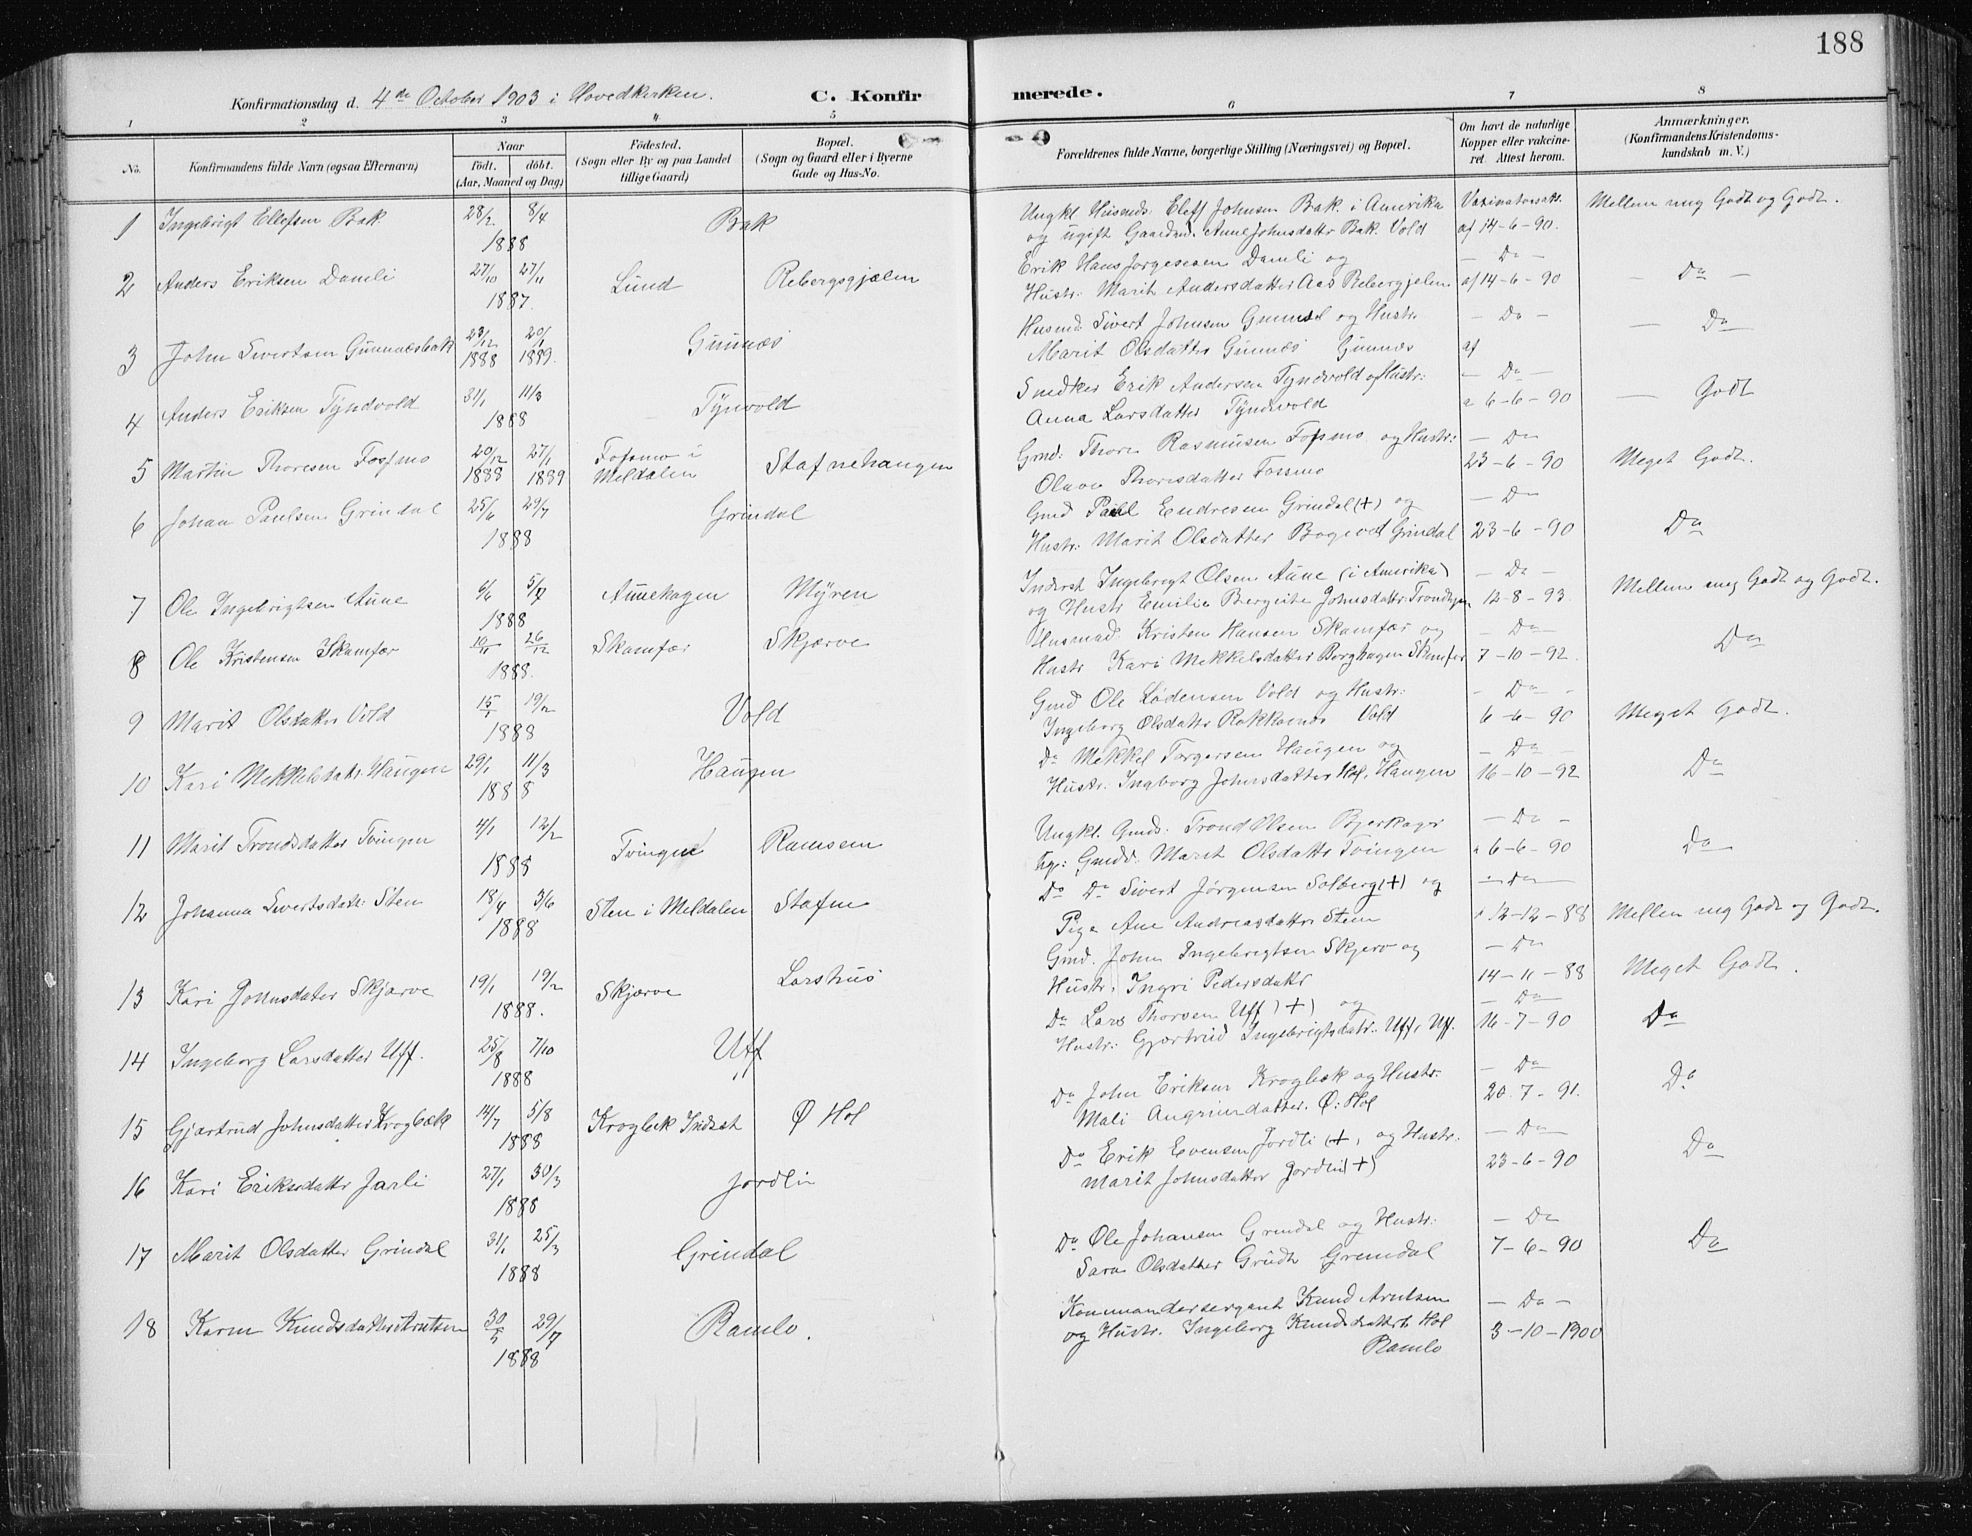 188
Konfirmationsdag d. 4de October 1903 i Hovedkirken.
C. Konfirmerede.
1 2 3 4 5 6 7 8
No.
Konfirmandens fulde Navn (ogsaa Efternavn)
Naar
født. døbt.
(Aar, Maaned og Dag)
Fødested.
(Sogn eller By og paa Landet
tillige Gaard)
Bopæl.
(Sogn og Gaard eller i Byerne
Gade og Hus-No.
Forældrenes fulde Navne, borgerlige Stilling (Næringsvei) og Bopæl.
Om havt de naturlige
Kopper eller vakcine-
ret. Attest herom.
Anmærkninger.
(Konfirmandens Kristendoms-
kundskab m. V.)
1 Ingebrigt Ellefsen Bak 28/2 8/4 1888 Bak
Ungkl Husmds: Elef Johnsen Bak. i Amerika
og ugift Gaardm. Ane Johnsdattr Bak. Vold
af 14-6-90.
Mellem mg Godt og Godt.
2 Anders Eriksen Damli 27/10 27/11 1887. Lund Rebergsgjælen
Erik Hans Jorgesen Damli og
Hustr: Marit Andersdatter Aas Rebergjelen
- Do -
af 14-6-90
- Do -
3 John Sivertsen Gunnæsbak 23/12 1888 20/1 1889. Gunnæs
Husmd Sivert Johnsen Gunnæs og Hustr.
Marit Olsdatter Gunnæs Gunnæs
- Do -
af
- Do
4 Anders Eriksen Tyndvold 31/1 11/3 1888 Tynvold
Snedker Erik Andersen Tyndvold og Hustr:
Anna Larsdatter Tyndvold
- Do -
a 6-6-90
- Godt
5 Martin Thoresen Fossmo 20/12 1888 27/1 1889 Fossmo i
Meldalen Stafnehaugen
Gmd: Thore Rasmusen Fossmo og Hustr:
Olava Thoresdatter Fossmo
- Do
23-6-90
Meget Godt.
6 Johan Paulsen Grindal 25/6 29/7 1888 Grindal
Gmd Paul Endresen Grindal (+) og
Hustr: Marit Olsdatter Grindal
- Do
23-6-90
Do
7 Ole Ingebrigtsen Aune 6/6 5/7 1888 Aunehagen Myren
Inderst Ingebrigt Olsen Aune (i Amerika)
og Hustr Emilie Bergite Johnsdattr Trondhjem
- Do -
12-8-93
Mellem mg Godt og Godt.
8 Ole Kristensen Skamfær 19/11 26/12 1888. Skamfær Skjærve
Husmad. Kristen Hansen Skamfær og
Hustr Kari Mekkelsdatter Borghagen Skamfer
- Do -
7-10-92.
Do
9 Marit Olsdatter Vold 15/1 19/2 1888 Vold
Gmd Ole Lødensen Vold og Hustr:
Ingeborg Olsdattr Vold
- Do -
6-6-90
Meget Godt.
10 Kari Mekkelsdatr Haugen 29/1 11/3 1888 Haugen
Do Mekkel Torgersen Haugen og
Hustr: Ingborg Johnsdatter Hol, Haugen
- Do -
16-10-92
Do
11 Marit Trondsdatter Tvingen 4/1 12/2 1885 Tvingen Ramsem
Ungkl. Gmds: Trond Olsen Bjerkager
Pige: Gmdd. Marit Olsdattr Tvingen
- Do -
a 6-6-90
Do
12 Johanna Sivertsdatr Sten 18/4 3/6 1888 Sten i Meldalen Stafne
Do Do Sivert Jørgensen Solberg (+) og
Pige Ane Andreasdattr Steen
- Do -
a 12-12-88
Mellem mg Godt og Godt.
13 Kari Johnsdater Skjærve 19/1 19/2 1888. Skjærve Larshus
Gmd. John Ingebrigtsen Skjerv og
Hustr. Ingri Pedersdattr
- Do
14-11-88
Meget Godt.
14 Ingeborg Larsdatter Uff. 25/8 7/10 1888 Uff
Do Lars Thorsen Uff (+) og
Hustr: Gjærtrud Ingebrigtsdatr. Uff, Uff.
- Do
16-7-90
Do
15 Gjærtrud Johnsdatter Krogbæk 14/7 5/8 1888 Krogbek Indset Ø Hol
Do John Eriksen Krogbæk og Hustr:
Mali Angrimdatter. Ø: Hol
- Do
20-7-91.
Do
16 Kari Eriksdattr Jarli 27/1 30/3 1888 Jordlin
Do Erik Evensen Jordli (+, og Hustr:
Marit Johnsdatter Jordli (+)
- Do -
23-6-90
Do
17 Marit Olsdatter Grindal 31/1 25/3 1888 Grindal
Do Ole Johansen Grindal og Hustr:
Sara Olsdatter Grindal
- Do
7-6-90
Do
18 Karen Knudsdatter Arntsen 30/5 29/7 1888 Ramlo.
Kommandersergant Knud Arntsen
og Hustr. Ingeborg Knudsdatter Hol
Ramlo
- Do -
3-10-1900